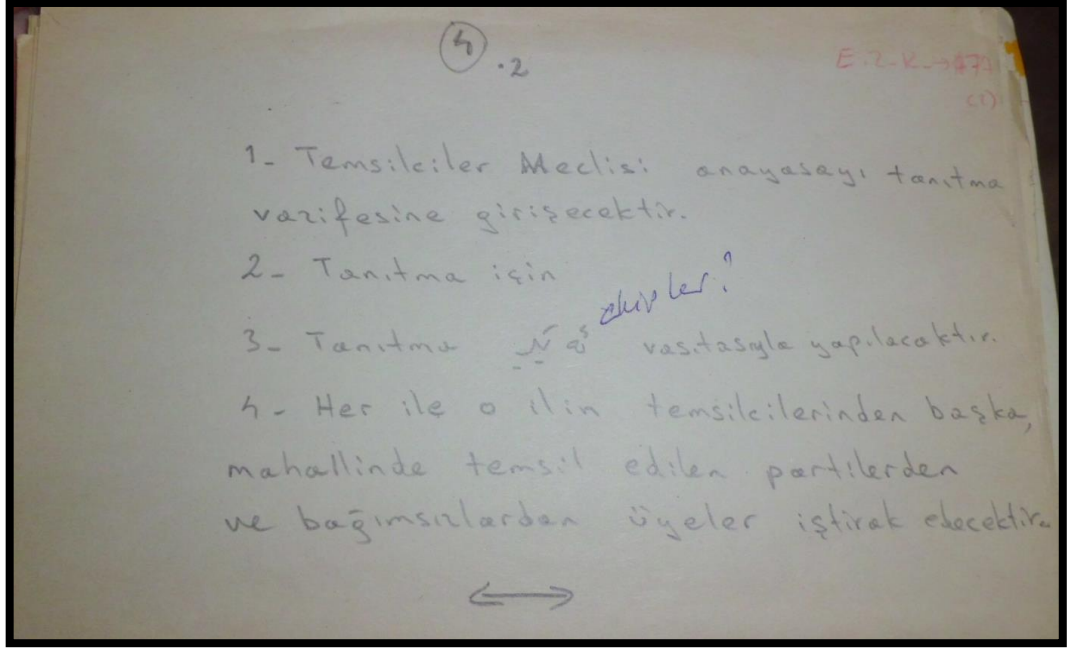 4
.2
E.2-K→477
(1)
1- Temsilciler Meclisi anayasayı tanıtma
vazifesine girişecektir.
2- Tanıtma için
ekipler?
3- Tanıtma vasıtasıyla yapılacaktır.
4- Her ile o ilin temsilcilerinden başka,
mahallinde temsil edilen partilerden
ve bağımsızlardan üyeler iştirak edecektir.